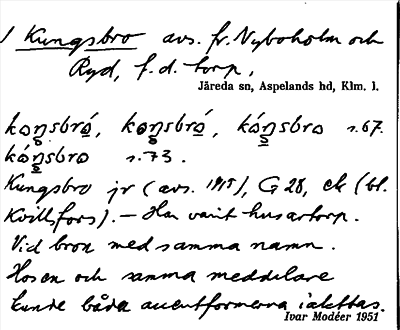 1 Kungsbro avs. fr. Nyboholm och
Ryd, f.d. torp,
Järeda sn, Aspelands hd, Klm. l.
koŋsbró, koŋsbró, kóŋsbro s. 67.
kóŋsbro s. 73.
Kungsbro jr (avs. 1915), G 28, ek (bl.
Kvillsfors). – Har varit husartorp.
Vid bron med samma namn.
Hosen och samma meddelare
kunde båda accentformerna iakttas.
Ivar Modéer 1951